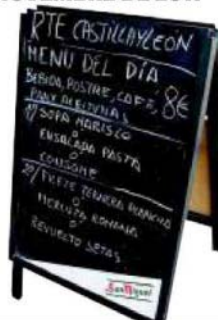 RTE CASTILLAYLEÓN
MENU DEL DÍA
BEBIDA, POSTRE, CAFE, 8€
PAN Y ACEITUNAS
1º/ SOPA MARISCO
O
ENSALADA PASTA
O
CONSOME
2º/ FILETE TERNERA
O
MERLUZA ROMANA
O
REVUELTO SETAS
San Miguel